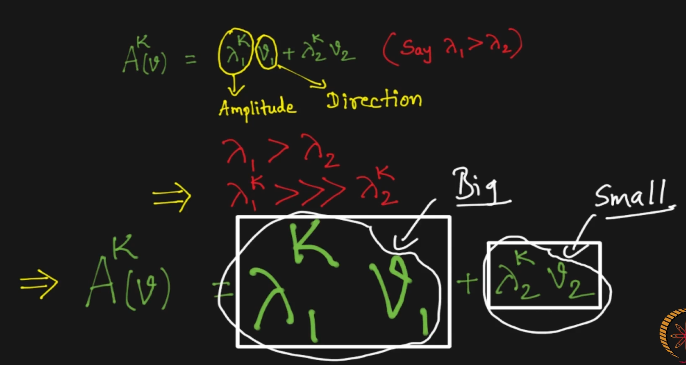 A^K(v) = λ₁^K v₁ + λ₂^K v₂ (Say λ₁ > λ₂)
Amplitude Direction
λ₁ > λ₂
⇒ λ₁^K >>> λ₂^K
Big
Small
⇒ A^K(v) = λ₁^K v₁ + λ₂^K v₂